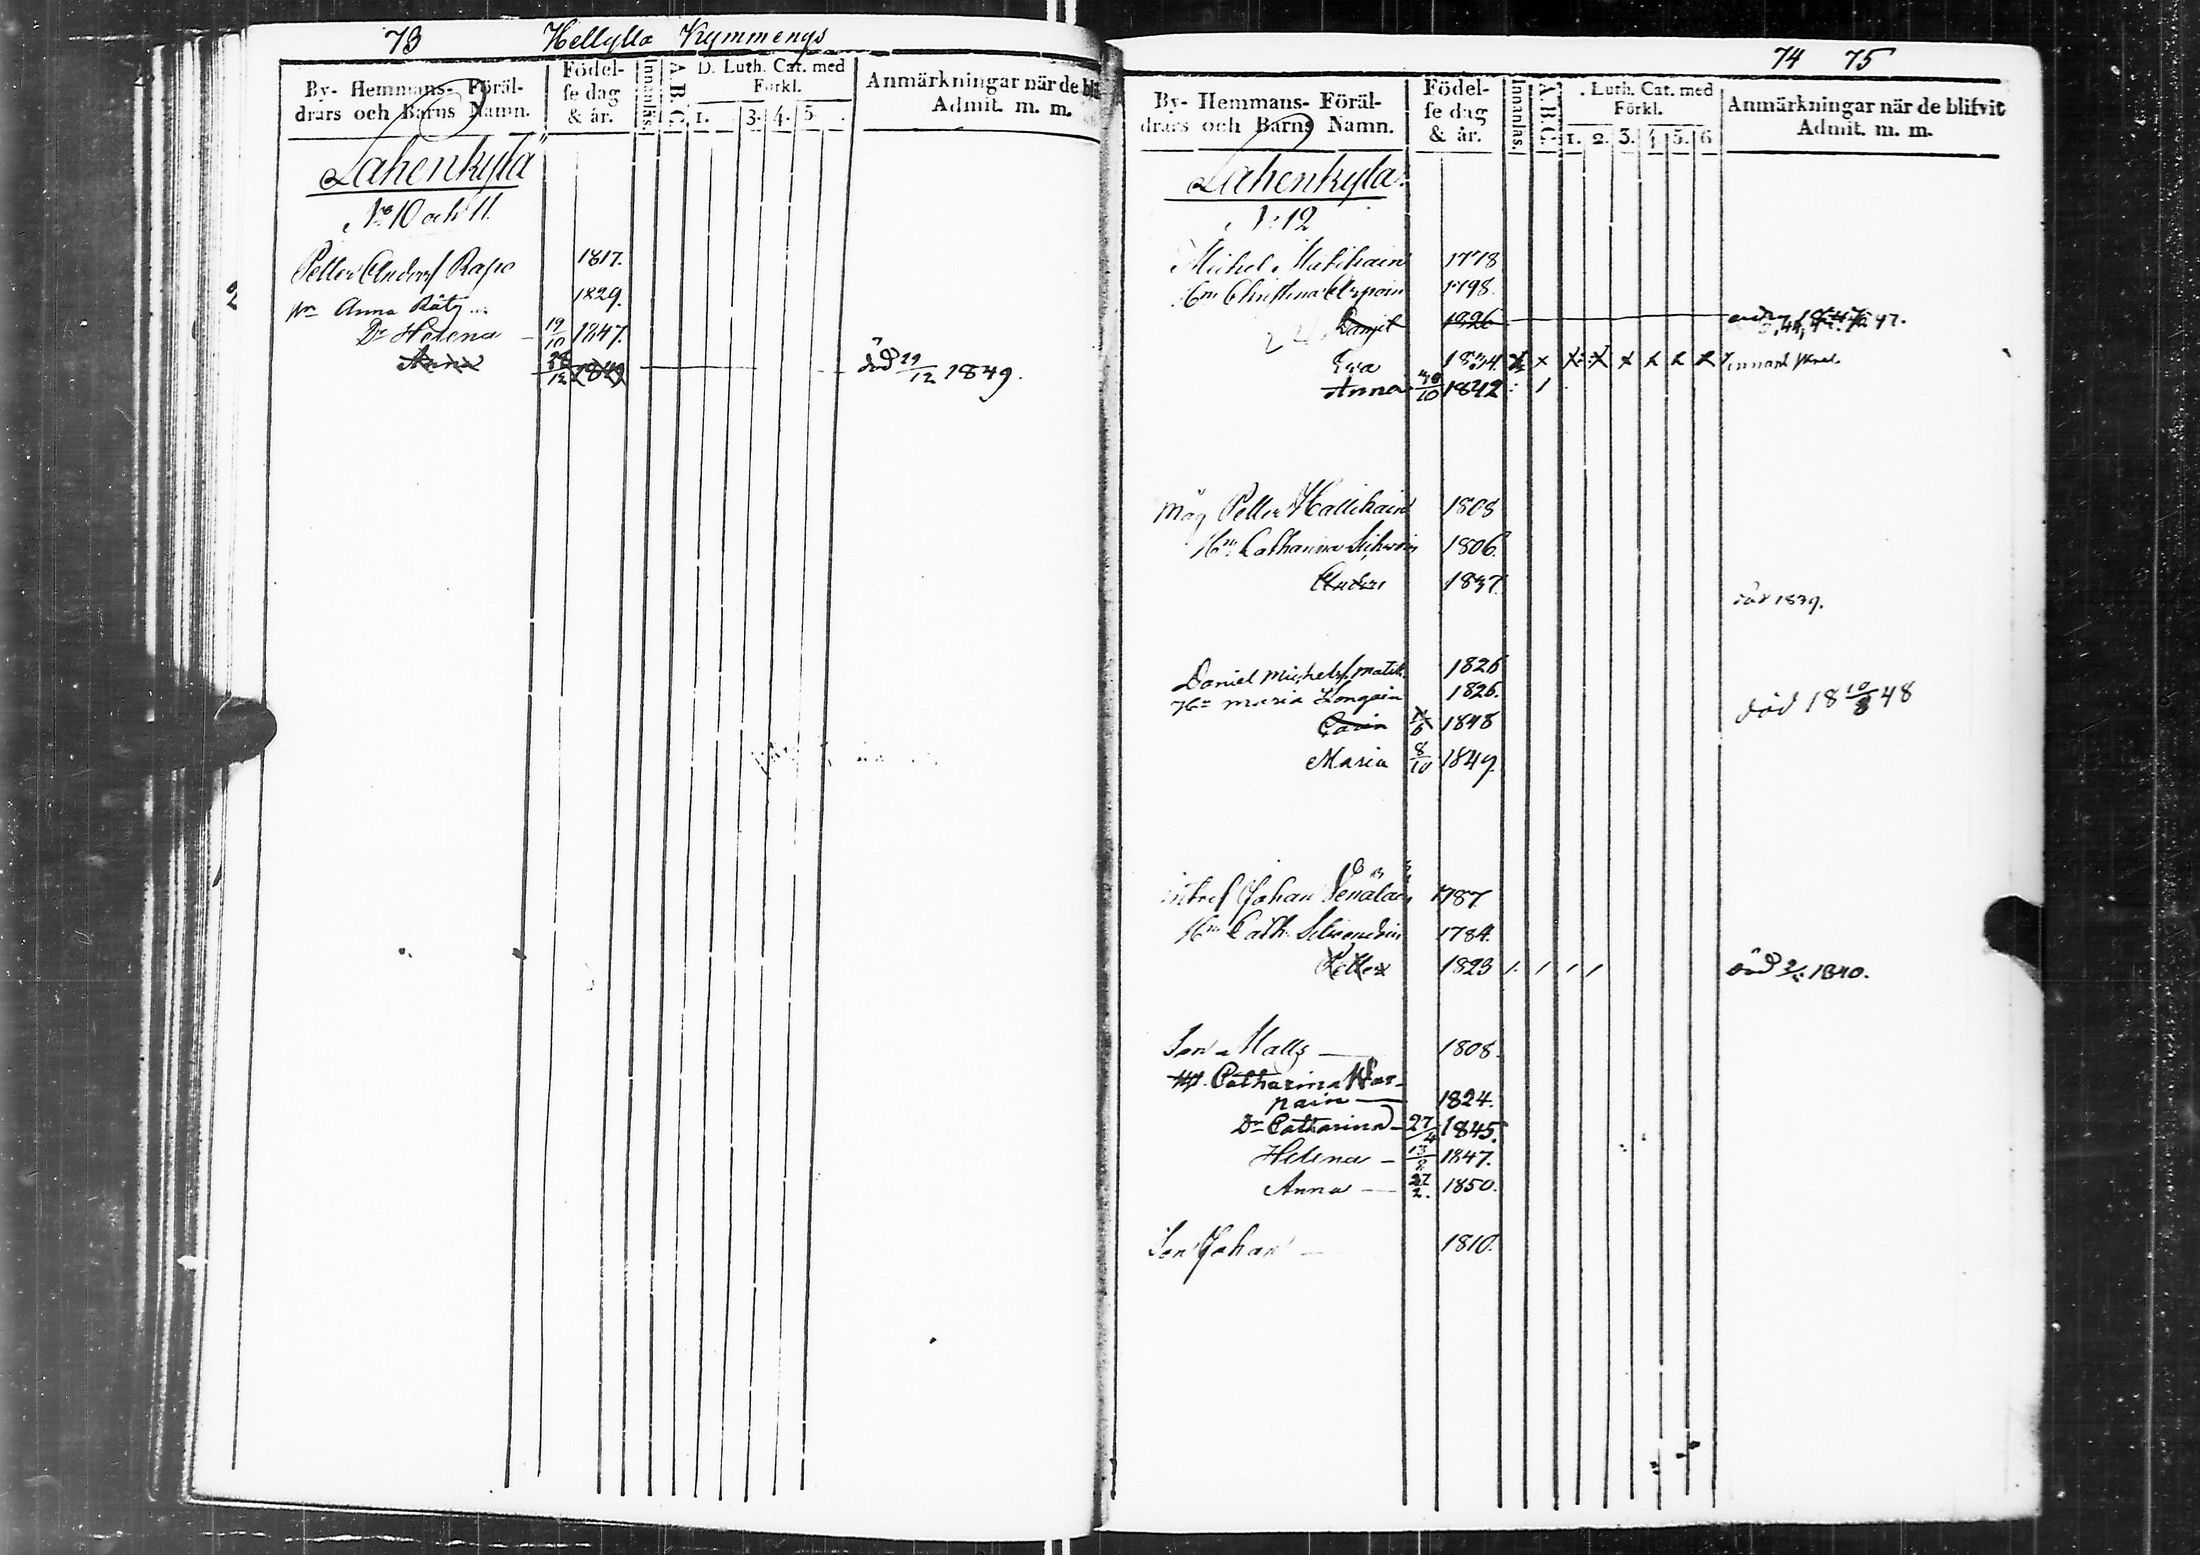 73 Hellylla Kymmenegs
By- Hemmans- Föräl-
drars och Barns Namn.
Födel-
se dag
& år.
Innanläs.
A. B. C.
D. Luth. Cat. med
Förkl.
1. 3. 4. 5
Anmärkningar när de bli
Admit. m. m.
Lahenkylä
No 10 och 11.
Petter Anderss Rapo 1817.
Anna Räty 1829.
Dr Helena 19/10 1847.
Anna 1849 död 29/12 1849.
74 75
By- Hemmans- Föräl-
drars och Barns Namn.
Födel-
se dag
& år.
Innanläs.
A. B. C.
. Luth. Cat. med
Förkl.
1. 2. 3. 4 5. 6
Anmärkningar när de blifvit
Admit. m. m.
Lahenkylä.
No 12
Michel Matihain 1778
Hu Christina 1798.
Daniel 1826
Eva 1834.
Anna 30/10 1842
måg Petter 1808
Hu Catharina 1806.
Anders 1837
död 1839.
Daniel Michelss. Matik. 1826
Hu Maria 1826.
Carin 1848 död 18 10/8 48
Maria 8/10 1849.
Johan 1787
Hu Cath. 1784.
Petter 1823 död 1840.
Son Matts 1808.
Catharina War-
pain 1824.
Dr Catharina 27/4 1845.
Helena 13/8 1847.
Anna 27/2. 1850.
Son Johan 1810.